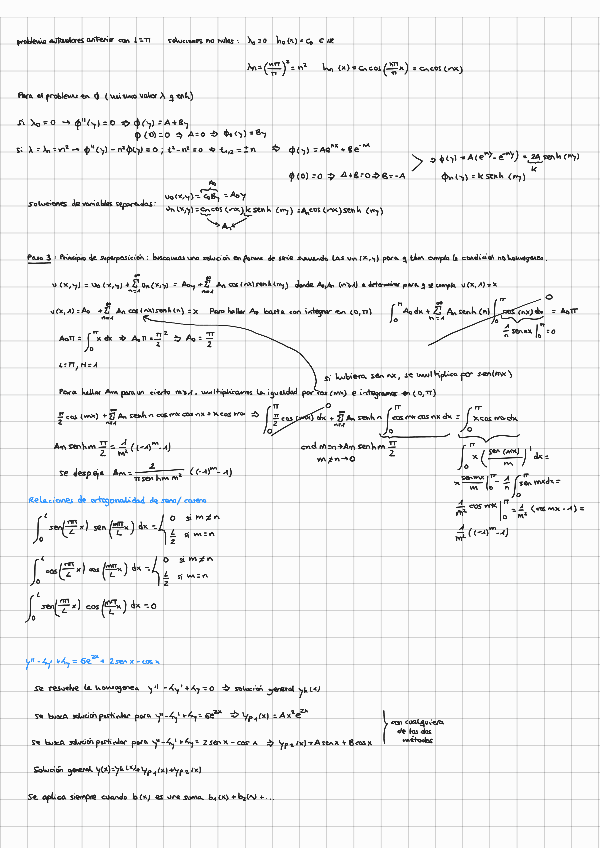 problema autovalores anterior con L=π soluciones no nulas: λ₀=0 h₀(x)=c₀ ∈ ℝ
λn=(nπ/π)²=n² hn(x)=cn cos(nπ/π x)=cn cos(nx)
Para el problema en ϕ (mismo valor λ y enh)
si λ₀=0 → ϕ''(y)=0 ⇒ ϕ(y)=A+By
ϕ(0)=0 ⇒ A=0 ⇒ ϕ₀(y)=By
si λ=λn=n² → ϕ''(y)-n²ϕ(y)=0; t²-n²=0 ⇒ t₁,₂=±n ⇒ ϕ(y)=Ae^nx+Be^-nx
ϕ(0)=0 ⇒ A+B=0 ⇒ B=-A
⇒ ϕ(y)=A(e^ny-e^-ny)=2A senh(ny)
K
ϕn(y)=k senh(ny)
A₀
soluciones de variables separadas: u₀(x,y)=c₀By=A₀y
un(x,y)=cn cos(nx)k senh(ny)=An cos(nx)senh(ny)
An
Paso 3: Principio de superposición: buscamos una solución en forma de serie sumando las un(x,y) para q tbn cumpla la condición no homogenea.
u(x,y)=u₀(x,y)+∑ un(x,y)=A₀y+∑ An cos(nx)senh(ny) donde A₀,An (n≥1) a determinar para q se cumpla u(x,1)=x
u(x,1)=A₀+∑ An cos(nx)senh(n)=x Para hallar A₀ basta con integrar en (0,π) ∫₀^π A₀dx+∑ An senh(n)∫₀^π cos(nx)dx=A₀π
0
1/n sen nx|₀^π=0
A₀π=∫₀^π x dx ⇒ A₀π=π²/2 ⇒ A₀=π/2
L=π, H=1
si hubiera sen nx, se multiplica por sen(mx)
Para hallar Am para un cierto m≥1, multiplicamos la igualdad por cos(mx) e integramos en (0,π)
π/2 cos(mx)+∑ An senh n cos mx cos nx = x cos mx ⇒ ∫₀^π π/2 cos(mx)dx+∑ An senh n ∫₀^π cos mx cos nx dx=∫₀^π x cos mx dx
0
Am senh m π/2=1/m²((-1)^m-1)
cnd m=n→Am senh m π/2
m≠n→0
∫₀^π x(sen(mx)/m)' dx=
se despeja Am=2/(π senh m m²)((-1)^m-1)
x sen mx/m|₀^π-1/n∫₀^π sen mx dx=
1/m² cos mx|₀^π=1/m²(cos mπ-1)=
1/m²((-1)^m-1)
Relaciones de ortogonalidad de seno/coseno
∫₀^L sen(nπ/L x) sen(mπ/L x) dx={0 si m≠n
L/2 si m=n
∫₀^L cos(nπ/L x) cos(mπ/L x) dx={0 si m≠n
L/2 si m=n
∫₀^L sen(nπ/L x) cos(mπ/L x) dx=0
y''-4y'+4y=6e^2x+2senx-cosx
Se resuelve la homogenea y''-4y'+4y=0 ⇒ solución general yh(x)
Se busca solución particular para y''-4y'+4y=6e^2x ⇒ yp₁(x)=Ax²e^2x
Se busca solución particular para y''-4y'+4y=2senx-cosx ⇒ yp₂(x)=Asenx+Bcosx
con cualquiera
de los dos
métodos
Solución general y(x)=yh(x)+yp₁(x)+yp₂(x)
Se aplica siempre cuando b(x) es una suma b₁(x)+b₂(x)+...